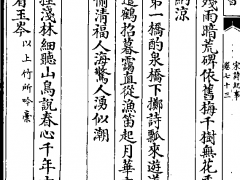 宋詩紀事
卷七十三
殘雨暗荒碑依舊梅千樹無花
納涼
第一橋酌泉橋下擲詩瓢來遊
鶴招暮靄直從漁笛起月華
清福人海驚人湧似潮
淺林細聽山鳥說春心千年
玉岑以上竹所吟稾